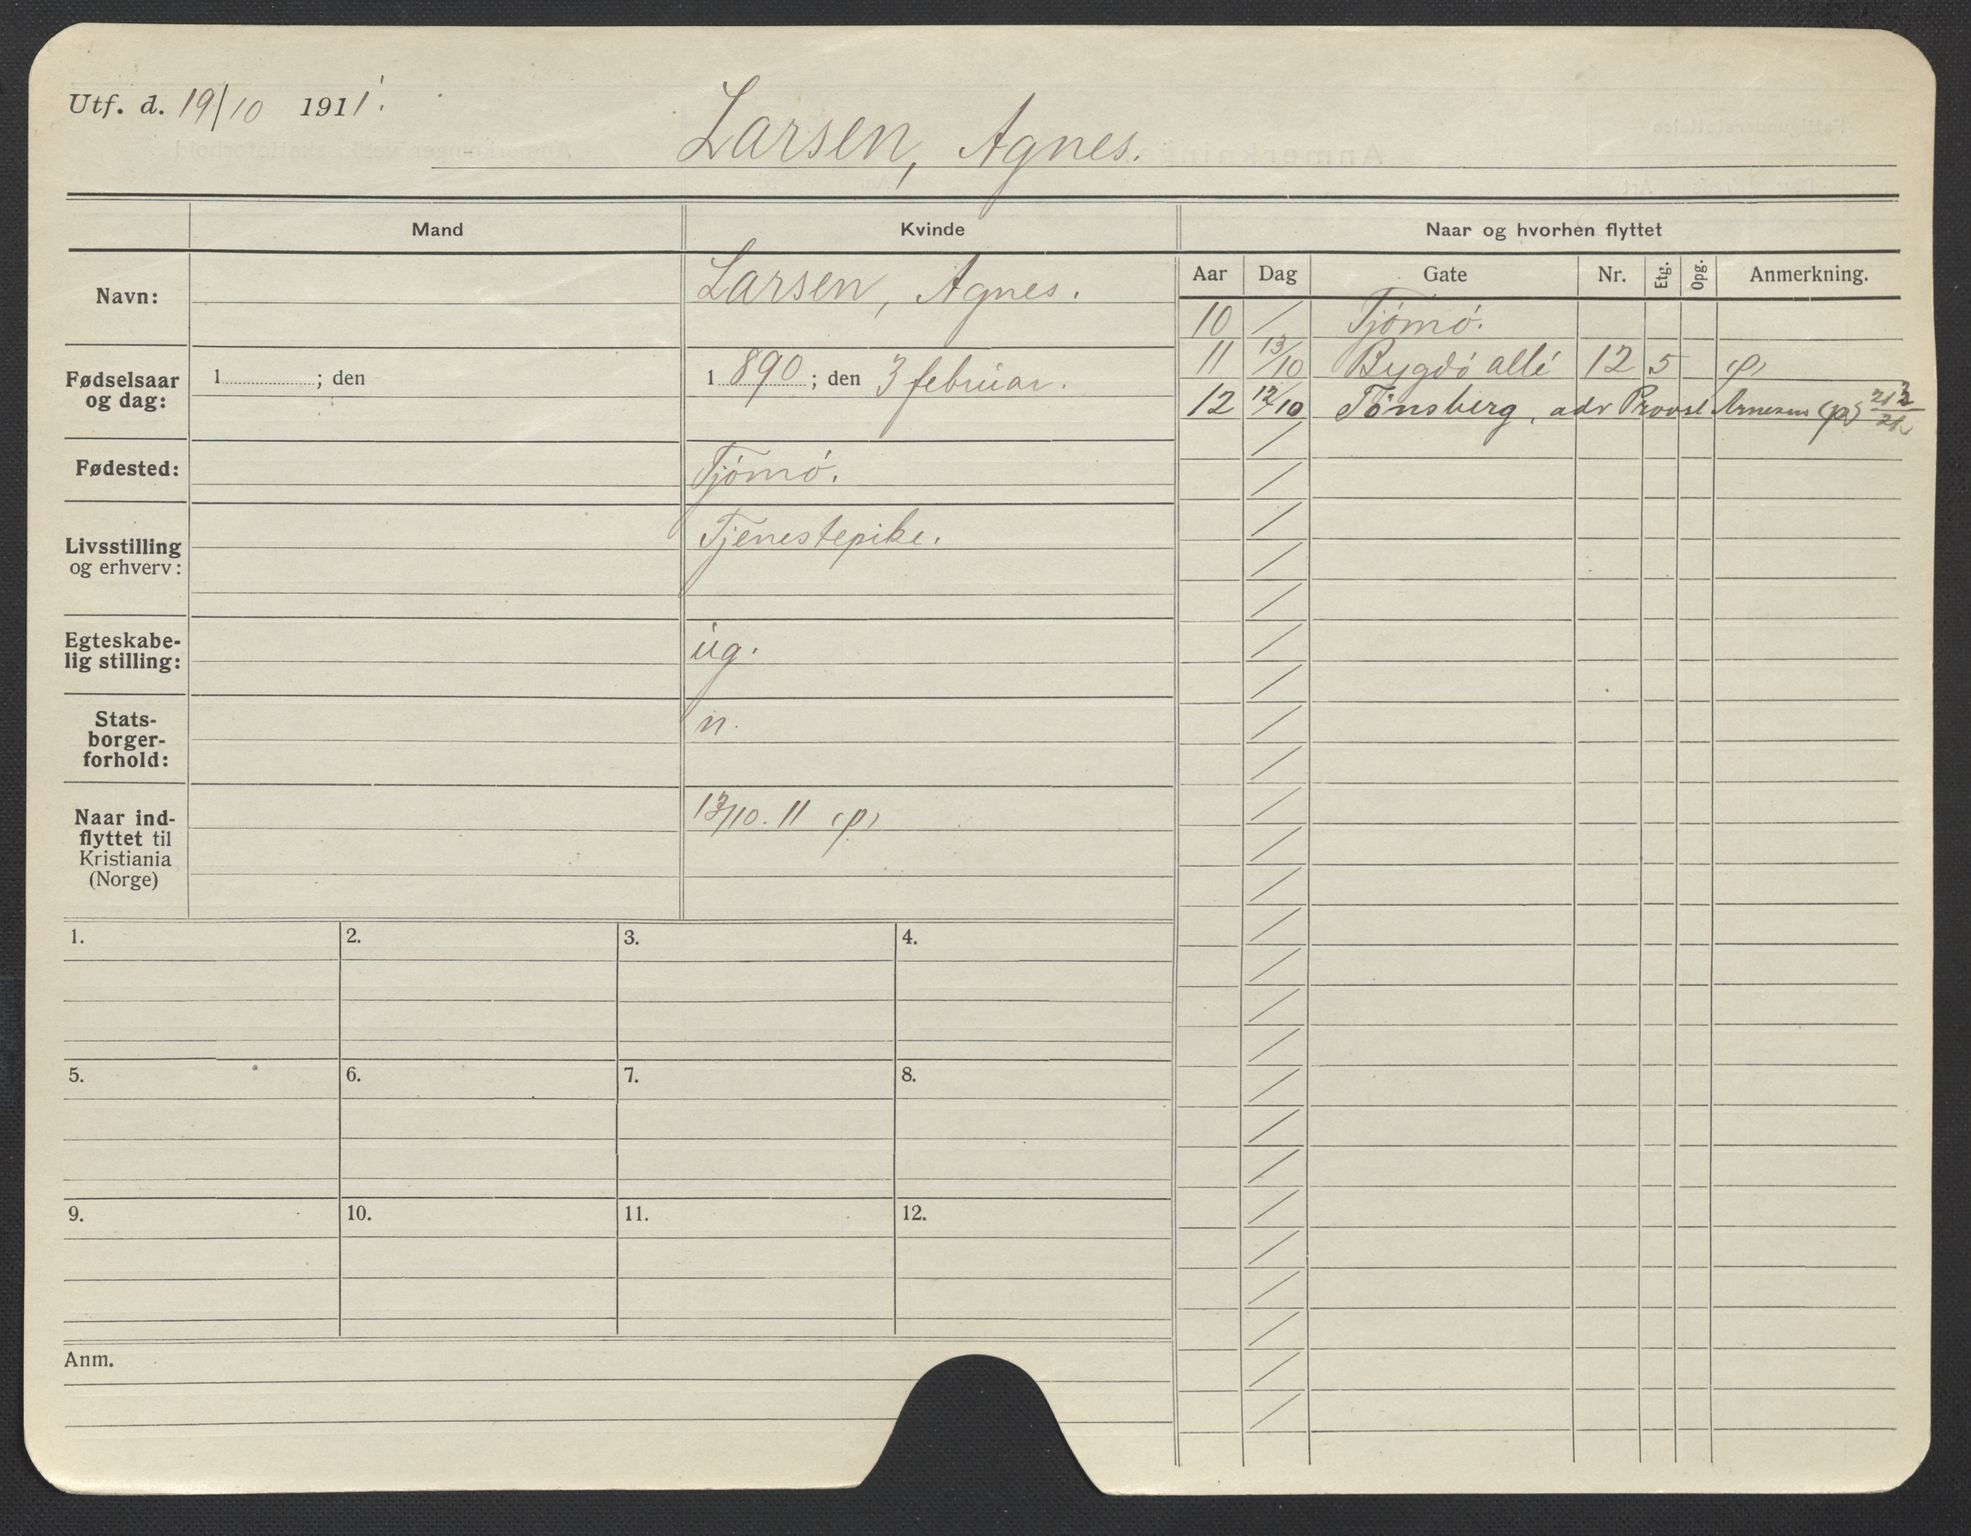 Utf. d. 19/10 1911.
Larsen, Agnes.
Mand Kvinde Naar og hvorhen flyttet
Aar Dag Gate Nr. Etg. Opg. Anmerkning.
Navn: Larsen, Agnes.
10 / Tjømø.
11 13/10 Bygdø allé 12 5 (p)
12 12/10 Tønsberg, adr Provst Arnesen (p)
Fødselsaar
og dag:
1 ; den
1 890 ; den 3 februar.
Fødested: Tjømø.
Livsstilling
og erhverv: Tjenestepike.
Egteskabe-
lig stilling: ug.
Stats-
borger-
forhold: n.
Naar ind-
flyttet til
Kristiania
(Norge)
13/10. 11 (p)
1. 2. 3. 4.
5. 6. 7. 8.
9. 10. 11. 12.
Anm.